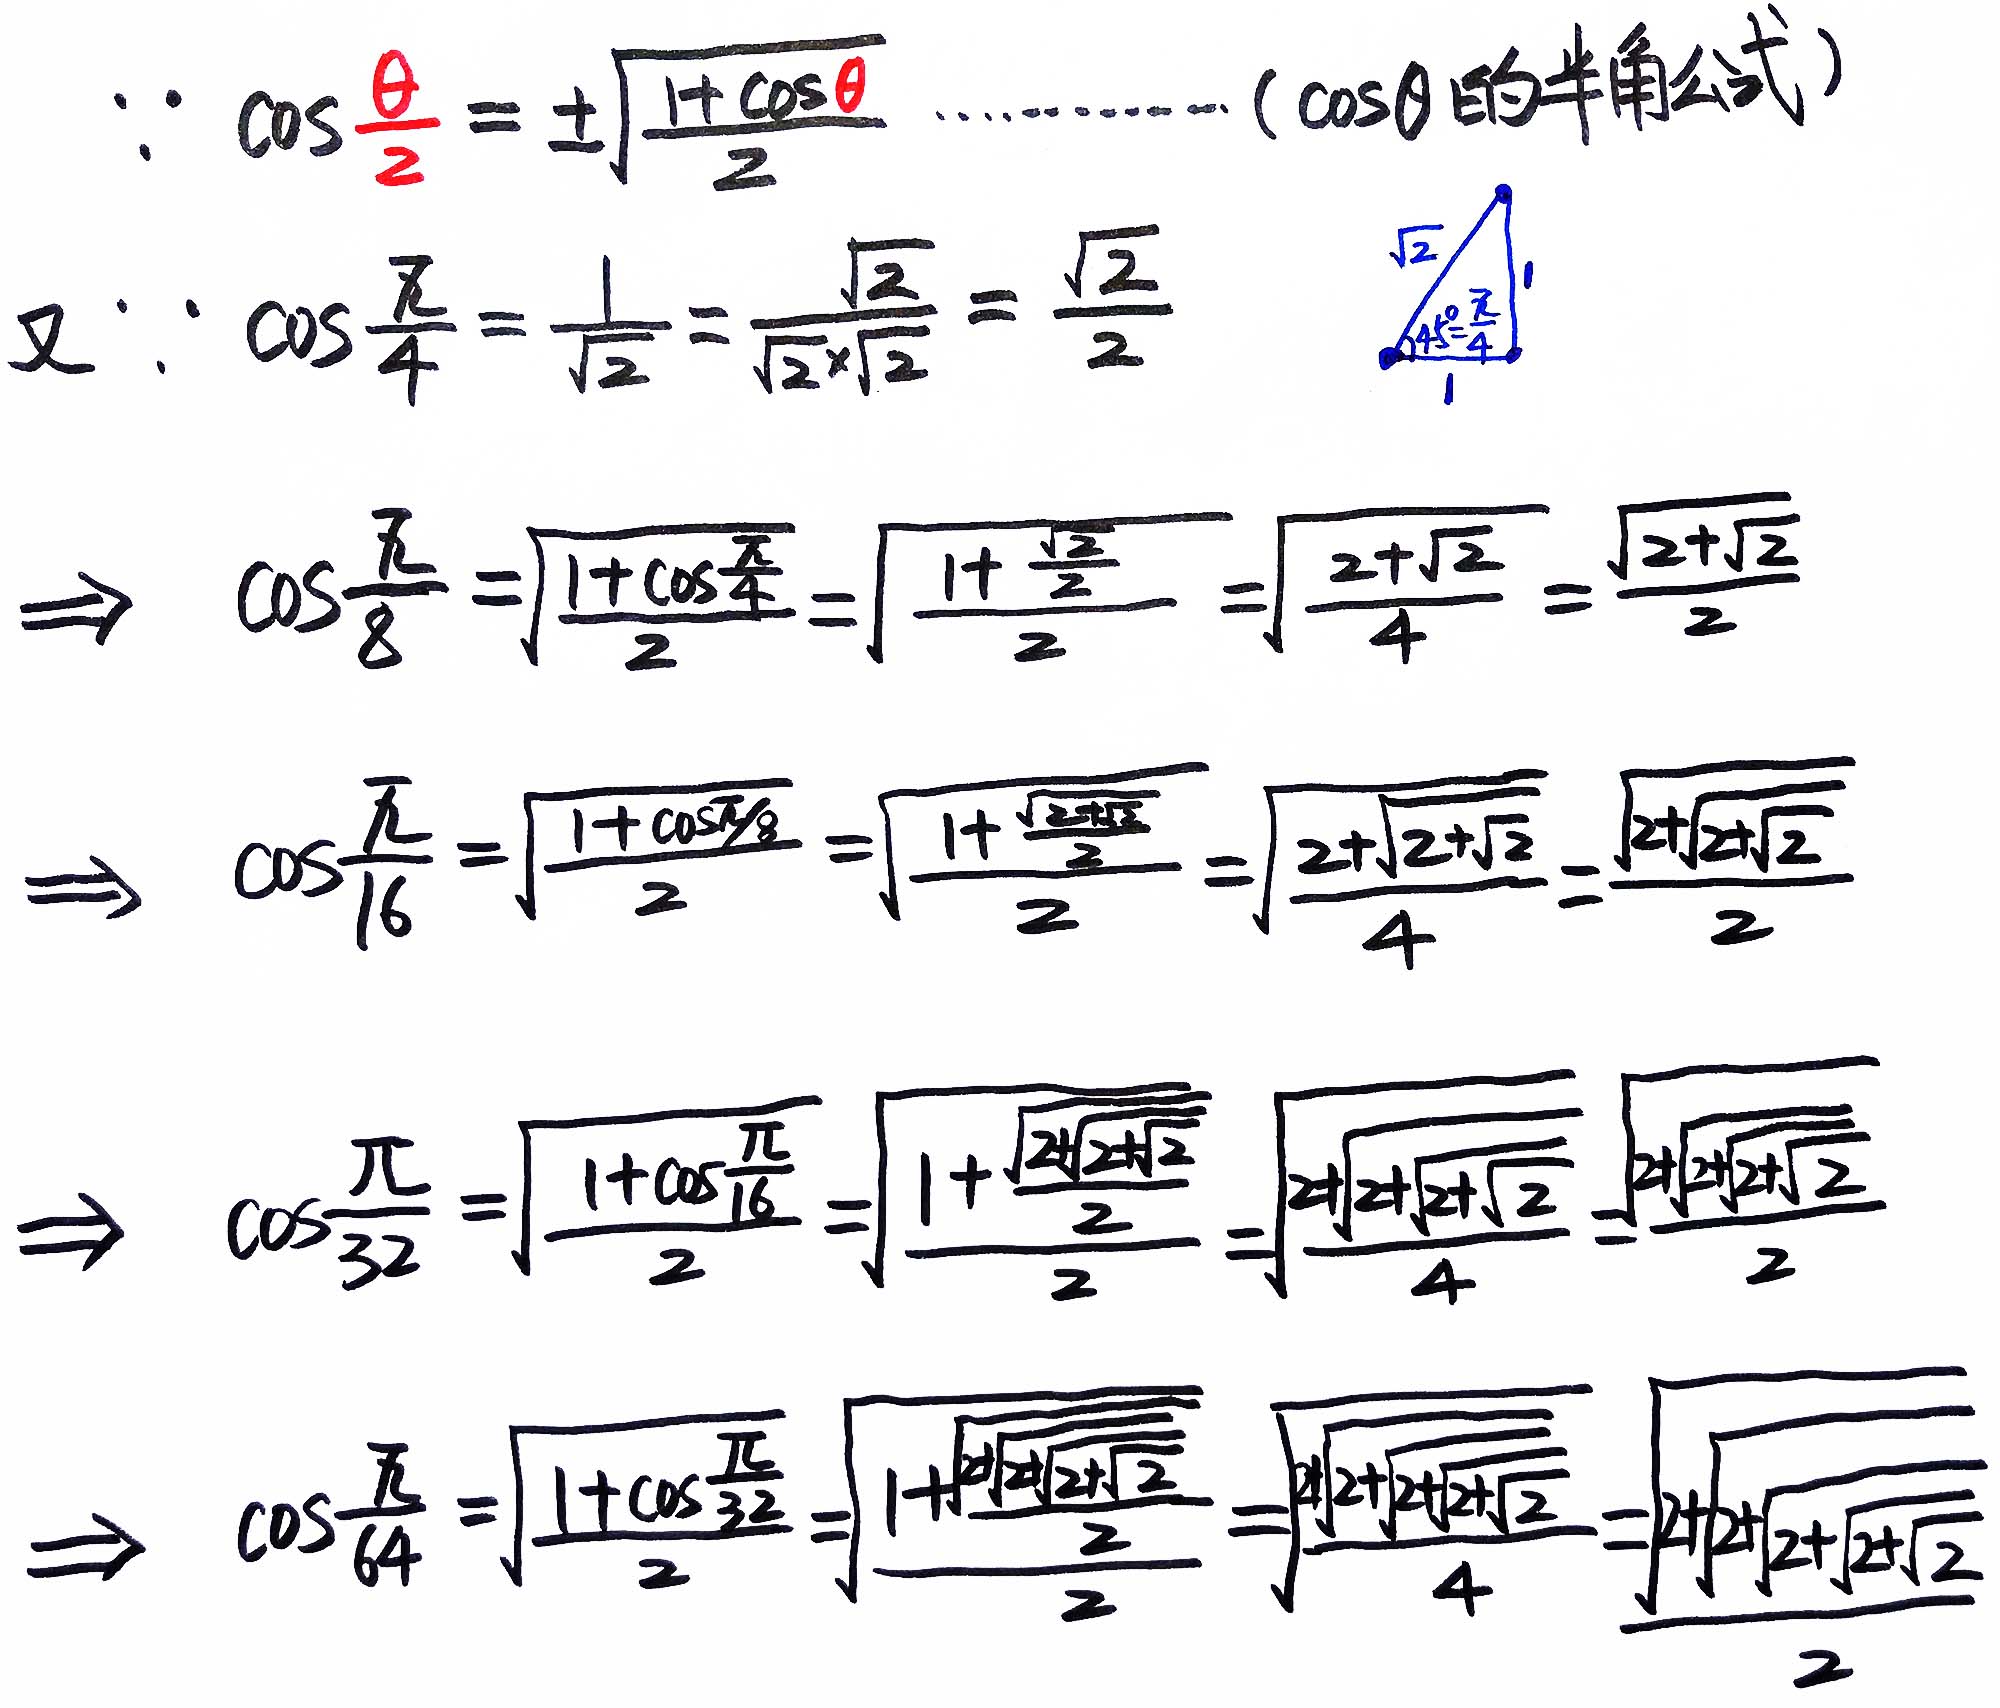 ∵ cos θ/2 = ±√((1+cosθ)/2) ············ (cosθ的半角公式)
又∵ cos π/4 = 1/√2 = √2/(√2×√2) = √2/2
√2
1
45°=π/4
1
⇒ cos π/8 = √((1+cos π/4)/2) = √((1+√2/2)/2) = √((2+√2)/4) = √(2+√2)/2
⇒ cos π/16 = √((1+cosπ/8)/2) = √((1+√(2+√2)/2)/2) = √((2+√(2+√2))/4) = √(2+√(2+√2))/2
⇒ cos π/32 = √((1+cos π/16)/2) = √((1+√(2+√(2+√2))/2)/2) = √((2+√(2+√(2+√2)))/4) = √(2+√(2+√(2+√2)))/2
⇒ cos π/64 = √((1+cos π/32)/2) = √((1+√(2+√(2+√(2+√2)))/2)/2) = √((2+√(2+√(2+√(2+√2))))/4) = √(2+√(2+√(2+√(2+√2))))/2